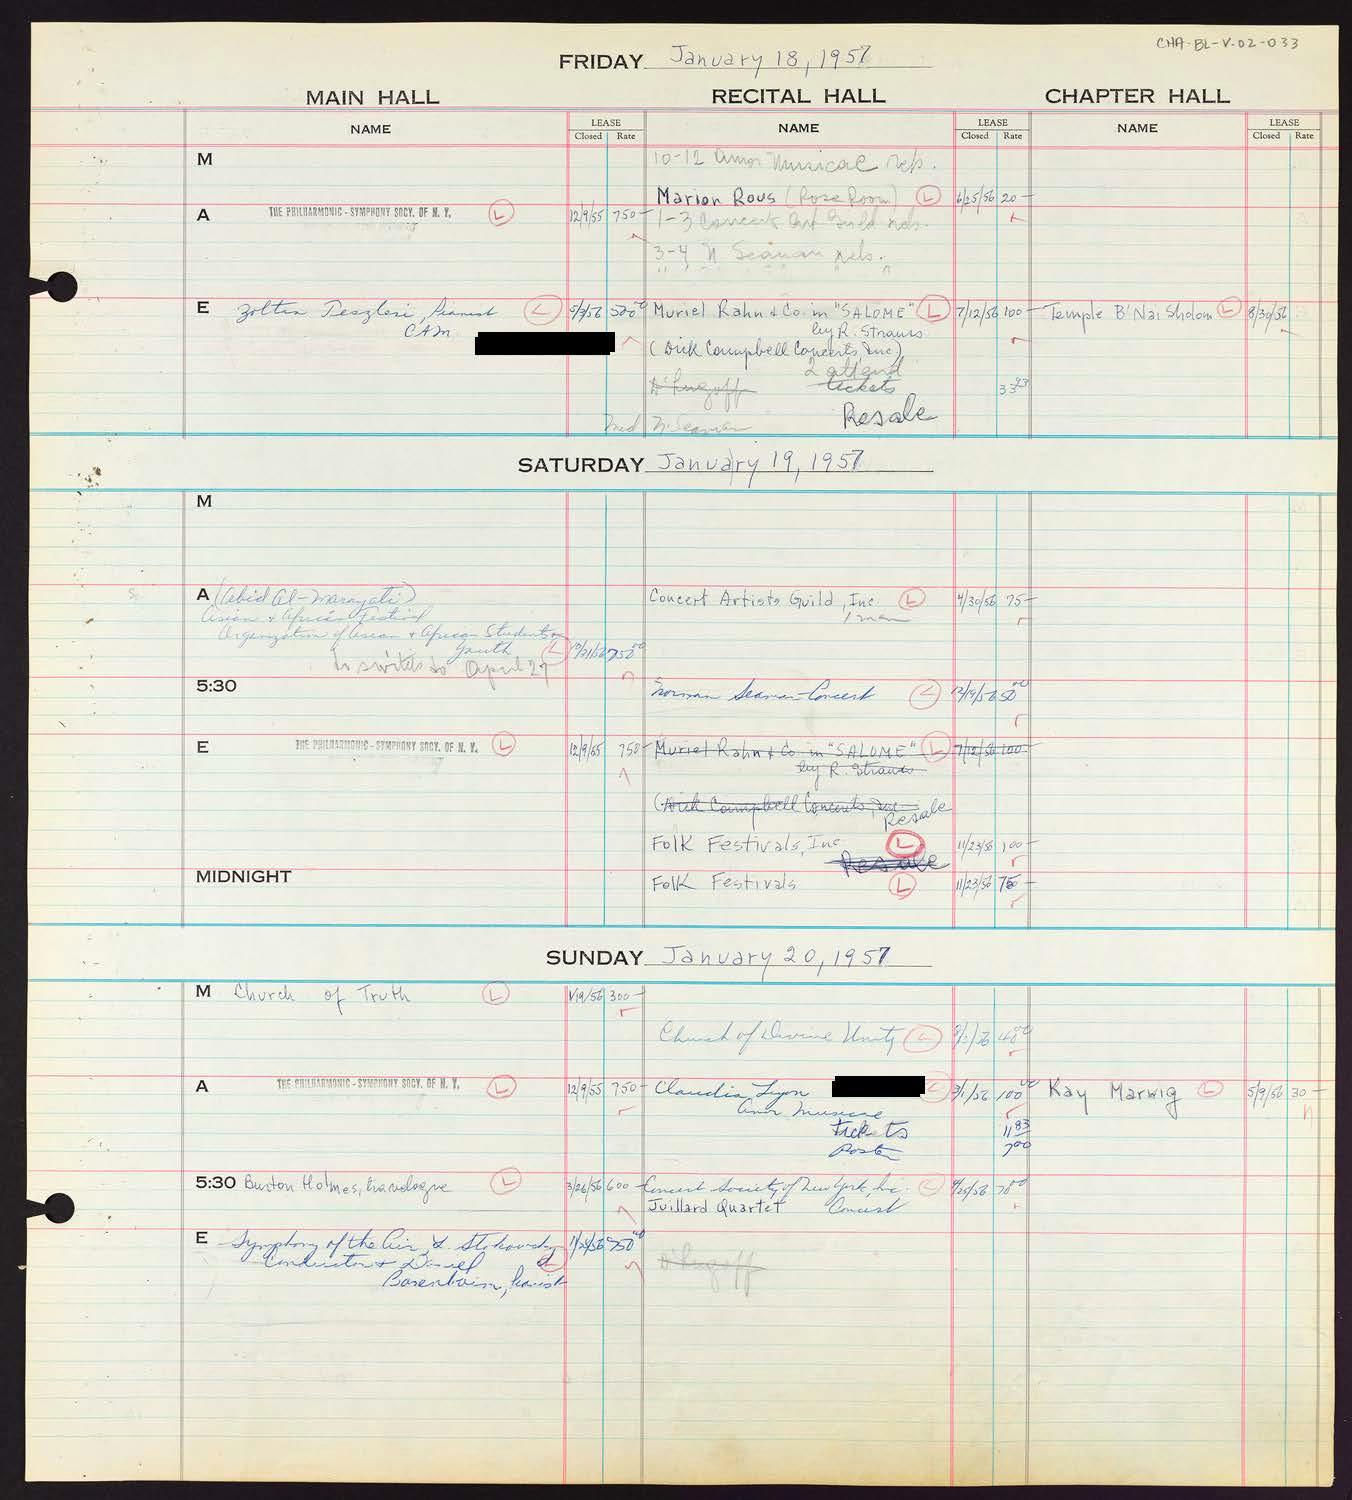 CHA-BL-V-02-033
FRIDAY January 18, 1957
MAIN HALL RECITAL HALL CHAPTER HALL
NAME LEASE Closed Rate NAME LEASE Closed Rate NAME LEASE Closed Rate
M
10-12 Amor Musicae reh.
Marion Rous (Rose Room) L 6/25/56 20-
A THE PHILHARMONIC-SYMPHONY SOCY. OF N. Y. L 12/9/55 750-
1-3 Concert Art Guild reh.
3-4 N Seaman reh.
E Zoltan Teszleri, Pianist L 5/3/56 520 00 Muriel Rahn & Co. in "SALOME" L 7/12/56 100- Temple B'Nai Sholom L 8/30/56
CAM by R. Strauss
(Dick Campbell Concerts, Inc)
2 attend
tickets 33 93
N. Seaman Resale
SATURDAY January 19, 1957
M
A (Abid Al-Marayati) Concert Artists Guild, Inc. L 4/30/56 75-
Asian & African Festival 1 man
Organization of Asian & African Students
Youth L 750 00
to switch to April 27
5:30 Norman Seaman-Concert L 12/19/56 50 00
E THE PHILHARMONIC-SYMPHONY SOCY. OF N. Y. L 12/9/55 750- Muriel Rahn & Co. in "SALOME" L 7/12/56 100-
by R. Strauss
(Dick Campbell Concerts, Inc
Resale
Folk Festivals, Inc. L 11/23/56 100-
Resale
MIDNIGHT Folk Festivals L 11/23/56 75-
SUNDAY January 20, 1957
M Church of Truth L 1/19/56 300-
Church of Divine Unity L 40 00
A THE PHILHARMONIC-SYMPHONY SOCY. OF N. Y. L 12/9/55 750- Claudia Lyon L 3/1/56 100 00 Kay Marwig L 5/9/56 30-
Amor Musicae
Tickets 11 83
Poster 7 00
5:30 Burton Holmes, travelogue L 3/26/56 600- Concert Society of New York, Inc. L 9/25/56 70 00
Juillard Quartet Concert
E Symphony of the Air, L. Stokowski 750 00
Conductor & Daniel L
Barenboim, Pianist